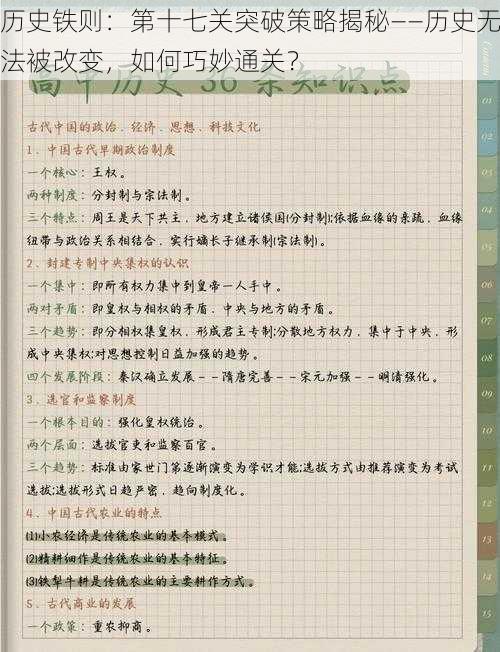 历史铁则：第十七关突破策略揭秘——历史无
法被改变，如何巧妙通关？
高中历史 36 条知识点
古代中国的政治、经济、思想、科技文化
1、中国古代早期政治制度
一个核心：王权。
两种制度：分封制与宗法制。
三个特点：周王是天下共主，地方建立诸侯国(分封制);依据血缘的亲疏，血缘
纽带与政治关系相结合，实行嫡长子继承制(宗法制)。
2、封建专制中央集权的认识
一个集中：即所有权力集中到皇帝一人手中。
两对矛盾：即皇权与相权的矛盾，中央与地方的矛盾。
三个趋势：即分相权集皇权，形成君主专制;分散地方权力，集中于中央，形
成中央集权;对思想控制日益加强的趋势。
四个发展阶段：秦汉确立发展－－隋唐完善－－宋元加强－－明清强化。
3、选官和监察制度
一个根本目的：强化皇权统治。
两个层面：选拔官吏和监察百官。
三个趋势：标准由家世门第逐渐演变为学识才能;选拔方式由推荐演变为考试
选拔;选拔形式日趋严密，趋向制度化。
4、中国古代农业的特点
⑴小农经济是传统农业的基本模式。
⑵精耕细作是传统农业的基本特征。
⑶铁犁牛耕是传统农业的主要耕作方式。
5、古代商业的发展
一个政策：重农抑商。
01
02
05
06
07
08
09
10
11
12
13
14
15